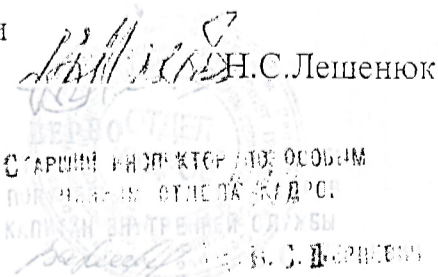 и
Н.С.Лешенюк
СТАРШИЙ ИНСПЕКТОР ПО ОСОБЫМ
ПОРУЧЕНИЯМ ОТДЕЛА КАДРОВ
КАПИТАН ВНУТРЕННЕЙ СЛУЖБЫ